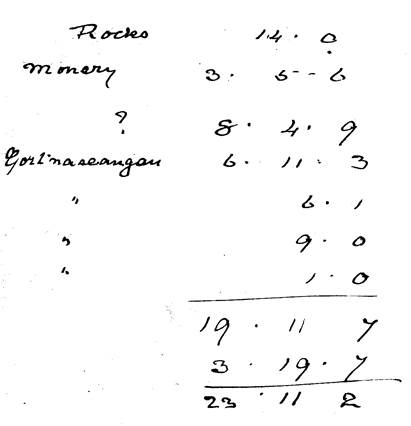 Rocks 14 . 0
Monery 3 . 5 - 6
? 8 . 4 . 9
Gortnaseangan 6 . 11 . 3
" 6 . 1
" 9 . 0
" 1 . 0
19 . 11 7
3 . 19 . 7
23 . 11 2